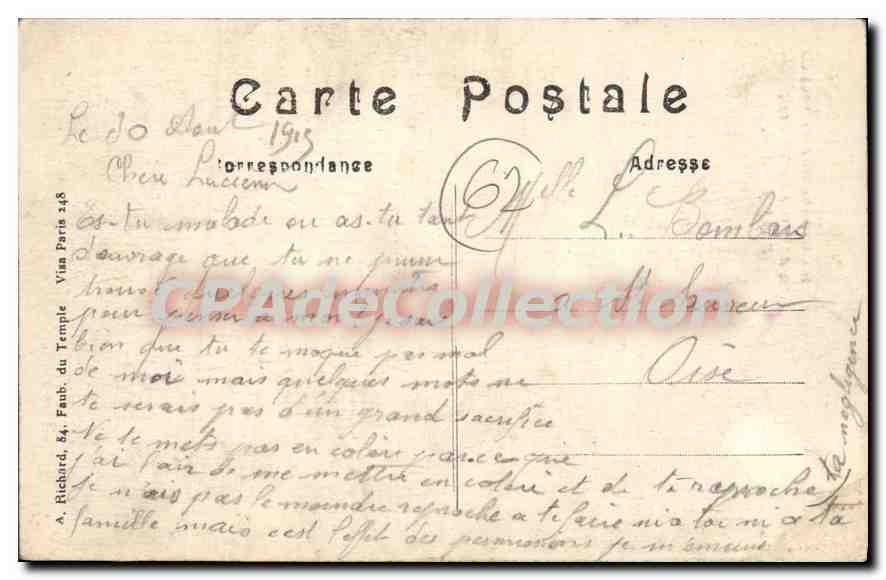 Carte Postale
Le 30 Aout 1915
Correspondance
Adresse
Chère Lucienne
62
Melle L. Gombars
Es-tu malade ou as-tu tant
d'ouvrage que tu ne puisse
trouver quelques
pour penser à moi je sais
bien que tu te moque pas mal
de moi mais quelques mots ne
te serais pas d'un grand sacrifice
Ne te mets pas en colère parce que
j'ai l'air de me mettre en colère et de te reprocher ta négligence
je n'ais pas le moindre reproche a te faire ni a toi ni a ta
famille mais c'est l'effet des permissions je m'ennuie
a St
Oise
A. Richard, 84, Faub. du Temple Visa Paris 248
CPAdeCollection